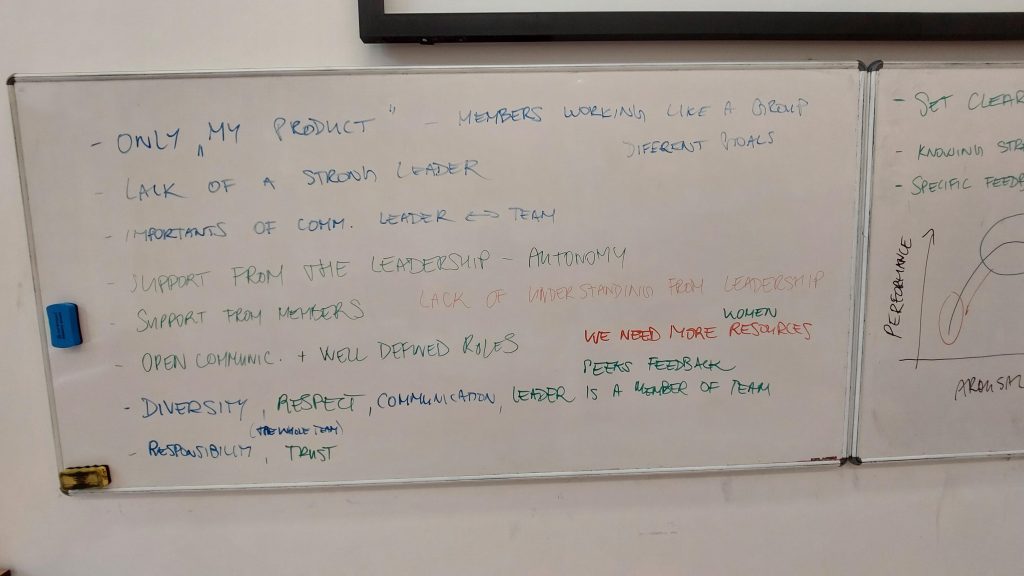 - ONLY „MY PRODUCT" - MEMBERS WORKING LIKE A GROUP
DIFERENT GOALS
- LACK OF A STRONG LEADER
- IMPORTANTS OF COMM. LEADER <-> TEAM
- SUPPORT FROM THE LEADERSHIP - AUTONOMY
- SUPPORT FROM MEMBERS
LACK OF UNDERSTANDING FROM LEADERSHIP
WOMEN
WE NEED MORE RESOURCES
- OPEN COMMUNIC. + WELL DEFINED ROLES
PEERS FEEDBACK
- DIVERSITY, RESPECT, COMMUNICATION, LEADER IS A MEMBER OF TEAM
(THE WHOLE TEAM)
- RESPONSIBILITY, TRUST
- SET CLEAR
- KNOWING STR
- SPECIFIC FEEDB
PERFORMANCE
AROUSAL